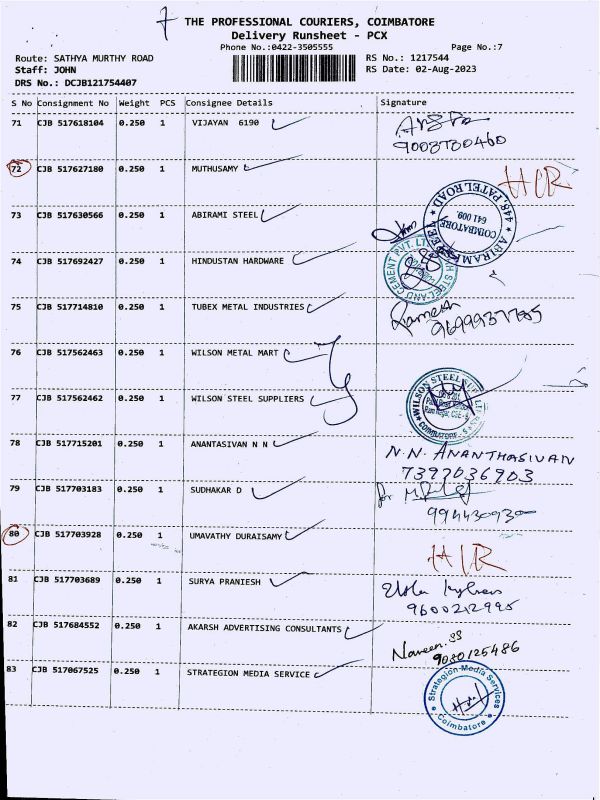 7
THE PROFESSIONAL COURIERS, COIMBATORE
Delivery Runsheet - PCX
Phone No.:0422-3505555 Page No.:7
Route: SATHYA MURTHY ROAD RS No.: 1217544
Staff: JOHN RS Date: 02-Aug-2023
DRS No.: DCJB121754407
S No Consignment No Weight PCS Consignee Details Signature
71 CJB 517618104 0.250 1 VIJAYAN 6190
9003780460
72 CJB 517627180 0.250 1 MUTHUSAMY HIR
73 CJB 517630566 0.250 1 ABIRAMI STEEL
448, PATEL ROAD
COIMBATORE
641 009.
74 CJB 517692427 0.250 1 HINDUSTAN HARDWARE
CEMENT PVT. LTD
75 CJB 517714810 0.250 1 TUBEX METAL INDUSTRIES Ramesh
76 CJB 517562463 0.250 1 WILSON METAL MART
77 CJB 517562462 0.250 1 WILSON STEEL SUPPLIERS
WILSON STEEL
COIMBATORE
78 CJB 517715201 0.250 1 ANANTASIVAN N N N.N. ANANTHASIVAN
7397036903
79 CJB 517703183 0.250 1 SUDHAKAR D
9944309300
80 CJB 517703928 0.250 1 UMAVATHY DURAISAMY HIR
81 CJB 517703689 0.250 1 SURYA PRANIESH
9600212995
82 CJB 517684552 0.250 1 AKARSH ADVERTISING CONSULTANTS Naveen.SS
9080125486
83 CJB 517067525 0.250 1 STRATEGION MEDIA SERVICE
Strategion Media Services
Coimbatore